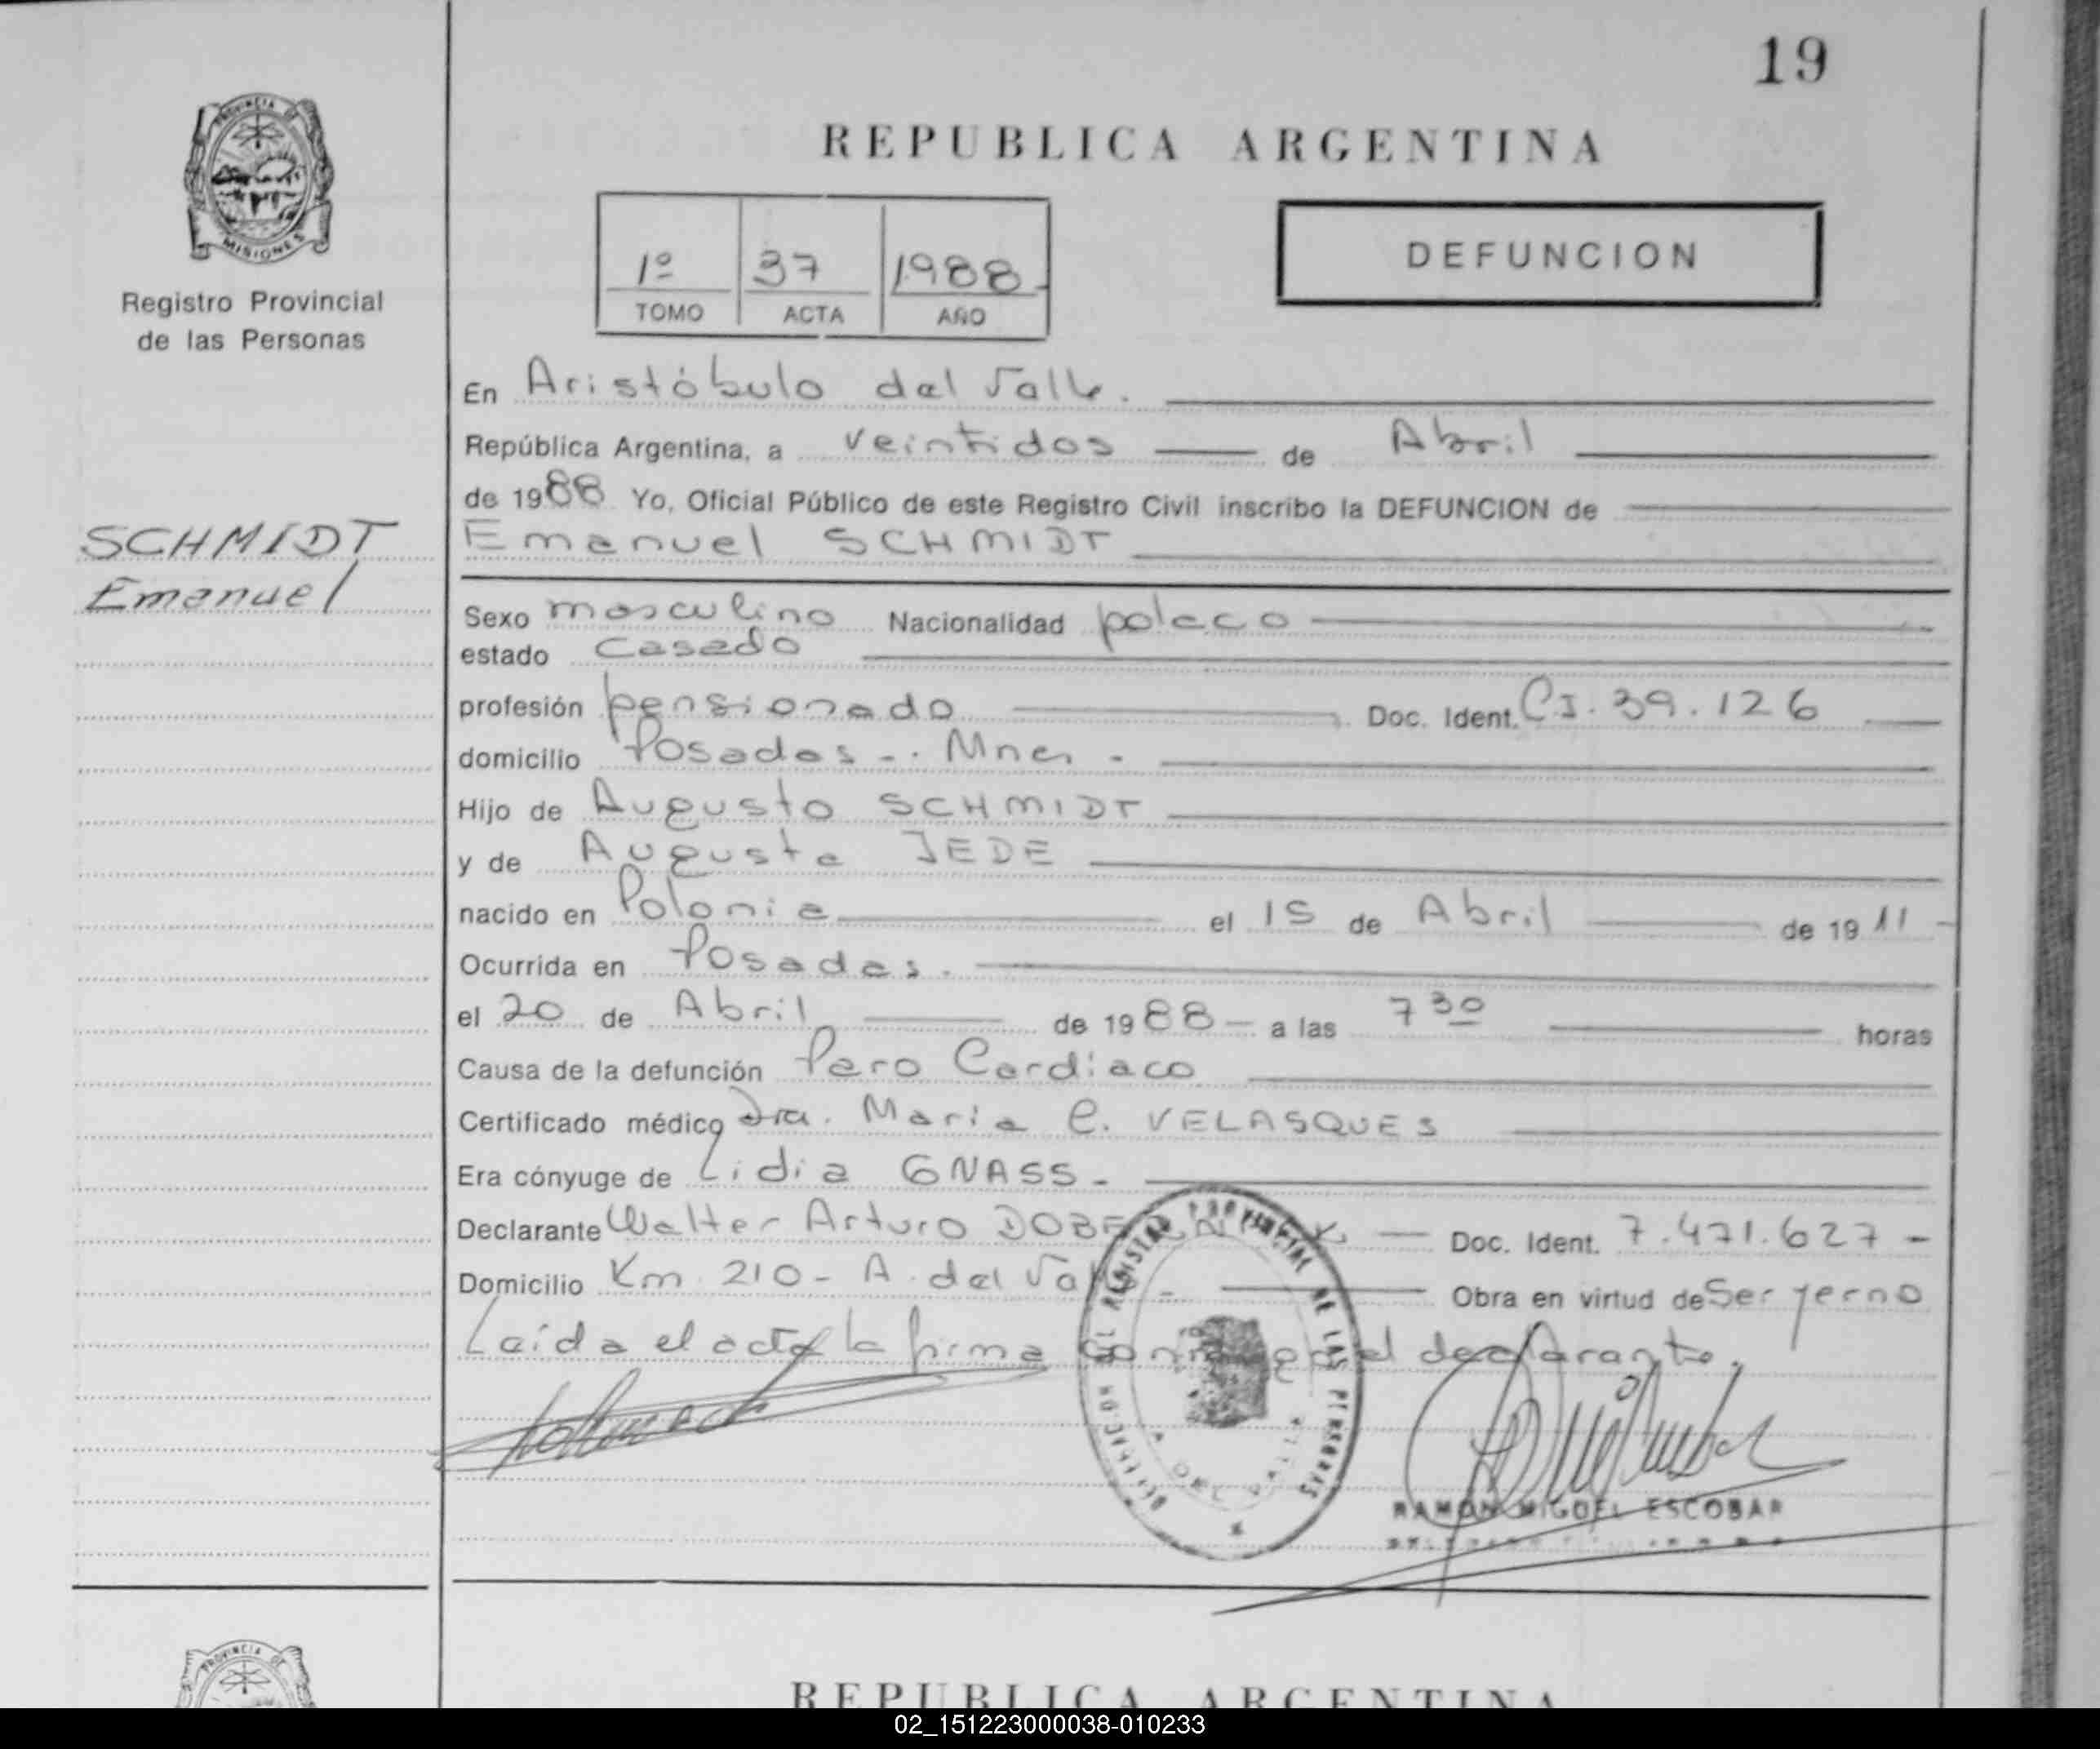 19
PROVINCIA DE
MISIONES
Registro Provincial
de las Personas
REPUBLICA ARGENTINA
1º 37 1988
TOMO ACTA AÑO
DEFUNCION
En Aristóbulo del Valle.
República Argentina, a veintidos de Abril
de 1988 Yo, Oficial Público de este Registro Civil inscribo la DEFUNCION de
SCHMIDT
Emanuel
Emanuel SCHMIDT
Sexo masculino Nacionalidad polaco
estado Casado
profesión pensionado Doc. Ident. CI. 39.126
domicilio Posadas -. Mnes -
Hijo de Augusto SCHMIDT
y de Augusta JEDE
nacido en Polonia el 15 de Abril de 1911 -
Ocurrida en Posadas.
el 20 de Abril de 1988 - a las 7 30 horas
Causa de la defunción Paro Cardíaco
Certificado médico Dra. María C. VELASQUES
Era cónyuge de Lidia GNASS -
Declarante Walter Arturo Doc. Ident. 7.471.627 -
Domicilio Km. 210 - A. del Valle - Obra en virtud de Ser yerno
Leída el acta la firma el declarante.
DEL REGISTRO PROVINCIAL DE LAS PERSONAS
DEL VALLE
RAMON MIGUEL ESCOBAR
PROVINCIA DE
REPUBLICA ARGENTINA
02_151223000038-010233